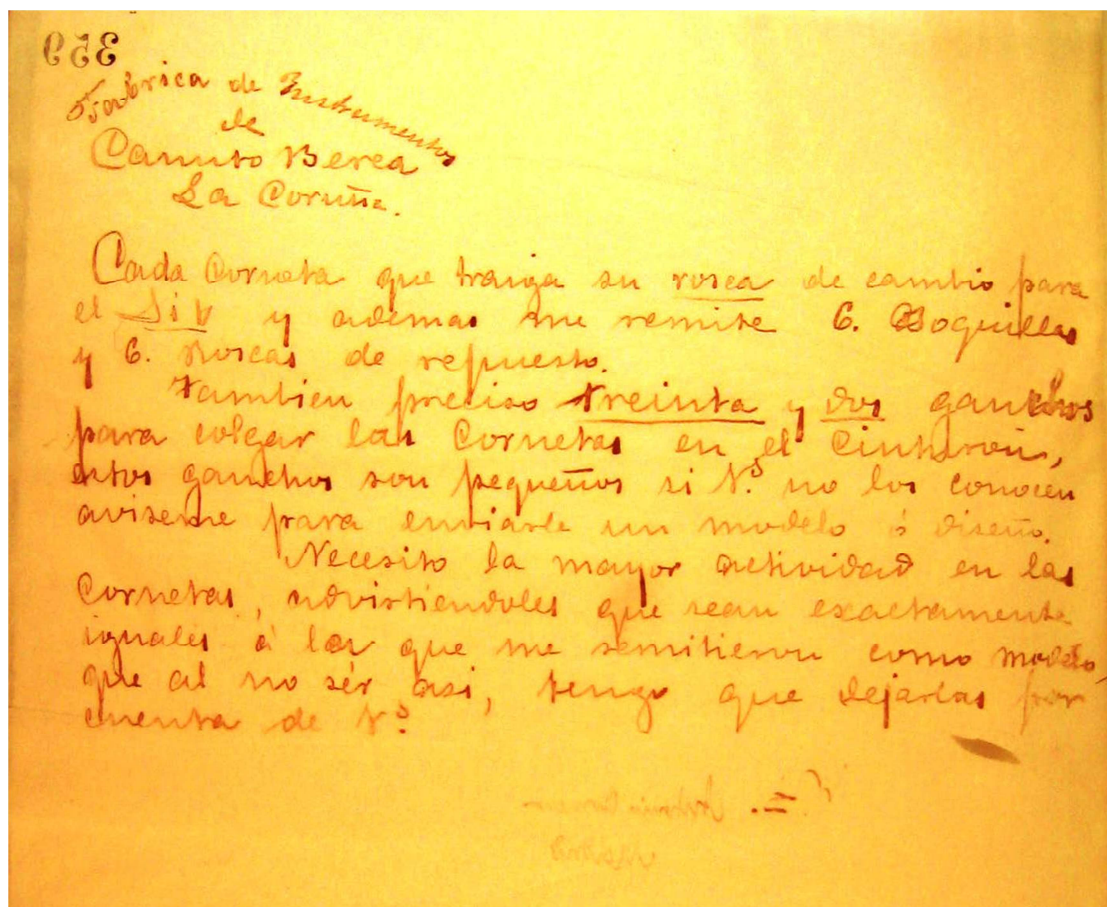 359
Fabrica de Instumentos
de
Canuto Berea
La Coruña.
Cada Corneta que traiga su rosca de cambio para
el Si b y ademas me remite 6. Boquillas
y 6. Roscas de repuesto.
Tambien preciso treinta y dos ganchos
para colgar las Cornetas en el Cinturon,
estos ganchos son pequeños si Vs. no los conocen
aviseme para enviarle un modelo ó diseño.
Necesito la mayor actividad en las
Cornetas, advirtiendoles que sean exactamente
iguales á las que me remitieron como modelo,
que al no sér asi, tengo que dejarlas por
cuenta de Vs.